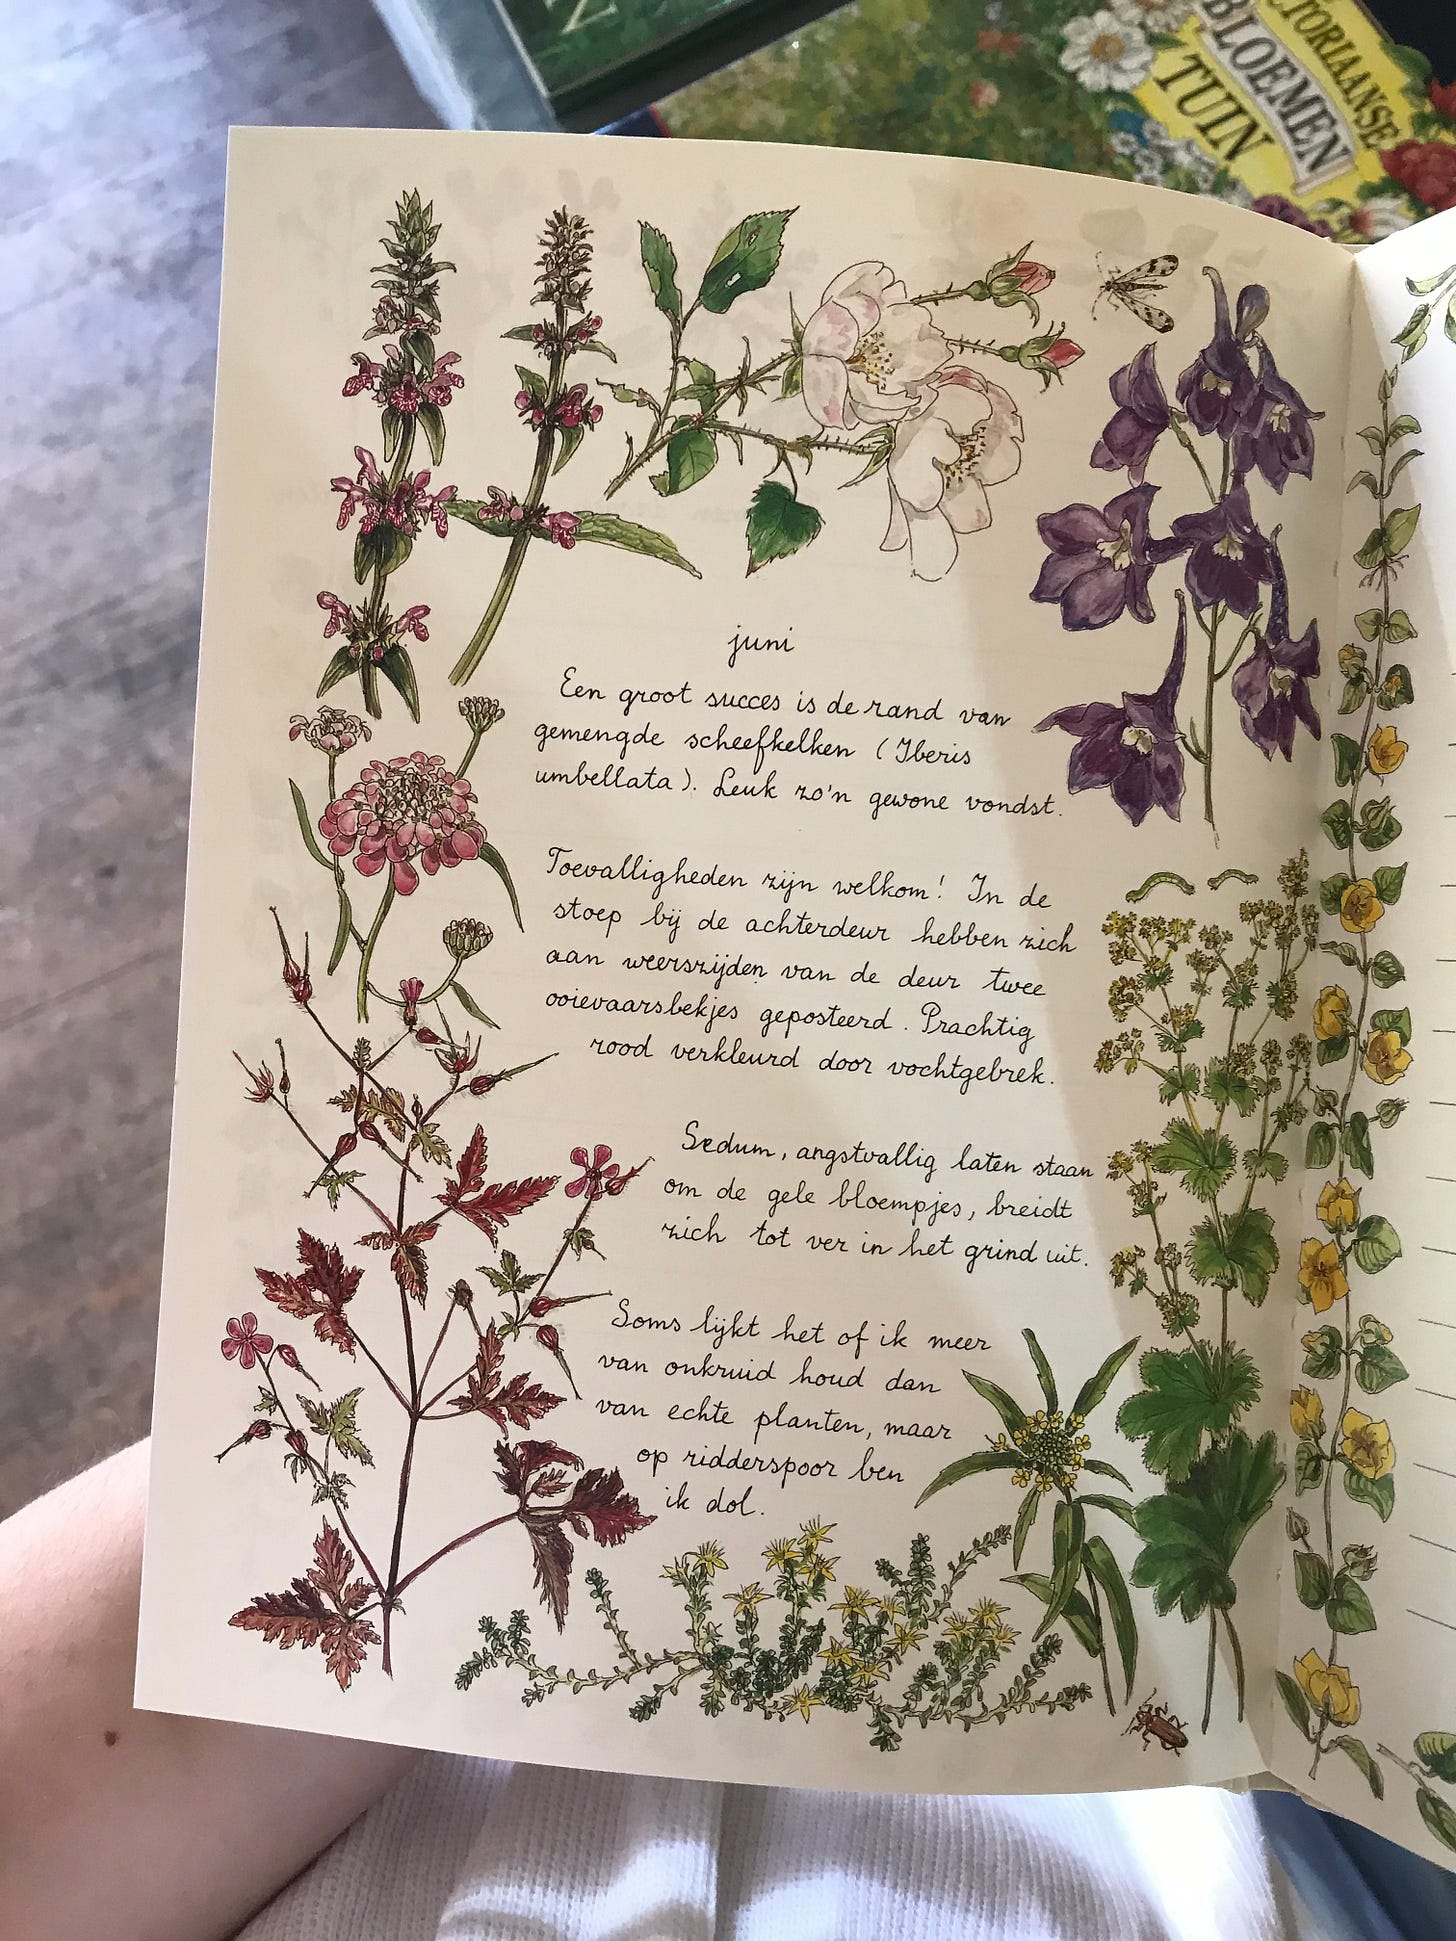 TORIAANSE
BLOEMEN
TUIN
juni
Een groot succes is de rand van
gemengde scheefkelken (Iberis
umbellata). Leuk zo'n gewone vondst.
Toevalligheden zijn welkom! In de
stoep bij de achterdeur hebben zich
aan weerszijden van de deur twee
ooievaarsbekjes geposteerd. Prachtig
rood verkleurd door vochtgebrek.
Sedum, angstvallig laten staan
om de gele bloempjes, breidt
zich tot ver in het grind uit.
Soms lijkt het of ik meer
van onkruid houd dan
van echte planten, maar
op ridderspoor ben
ik dol.